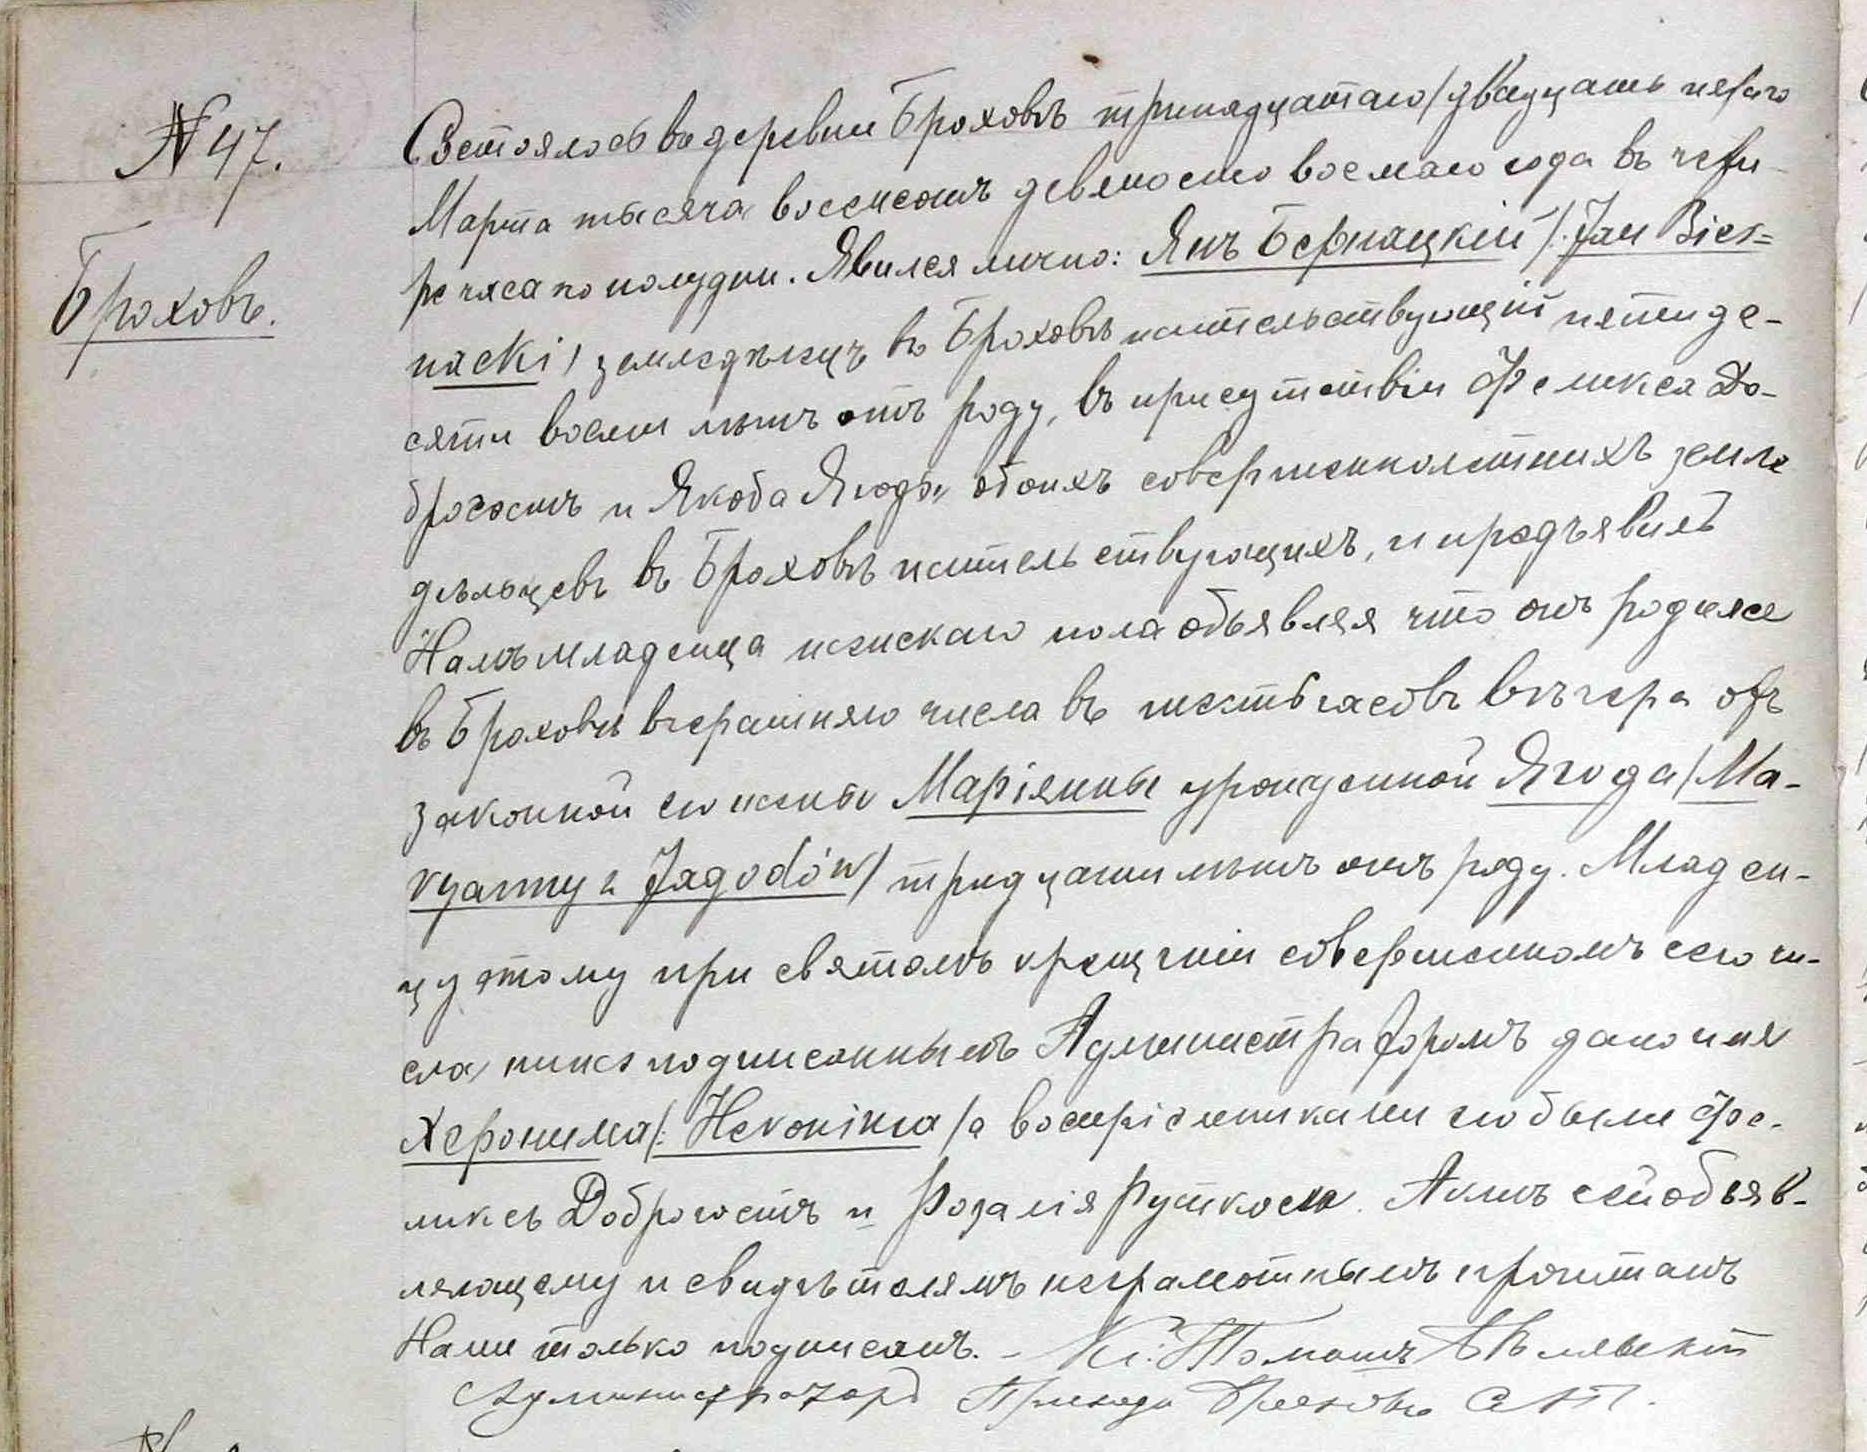 № 47.
Броховъ.
Состоялось въ деревни Броховѣ тринадцатаго / двадцать пятаго
Марта тысяча восемсотъ девяносто восмаго года въ четы-
ре часа по полудни. Явился лично: Янъ Бернацкій /: Jan Bier=
nacki / земледѣлецъ въ Броховѣ жительствующій пятиде-
сяти восеми лѣтъ отъ роду, въ присутствіи Феликса До-
брогостъ и Якоба Ягоды обоихъ совершеннолѣтнихъ земле
дѣльцевъ въ Броховѣ жительствующихъ, и предъявилъ
Намъ младенца женскаго пола объявляя что онъ родился
въ Броховѣ вчерашняго числа въ шесть часовъ вѣчера отъ
законной его жены Маріянны урожденной Ягода / Ma-
ryanny z Jagodów / тридцати лѣтъ отъ роду. Младен-
цу этому при святомъ крещеніи совершенномъ сего чи-
сла ниже подписаннымъ Администраторомъ дано имя
Херонима /: Heronima / а воспріемниками его были Фе-
ликсъ Доброгостъ и Розалія Руткоска. Актъ сей объяв-
ляющему и свидѣтелямъ неграмотнымъ прочитанъ
Нами только подписанъ. - Кс: Томашъ
Администраторъ Прихода Броховъ